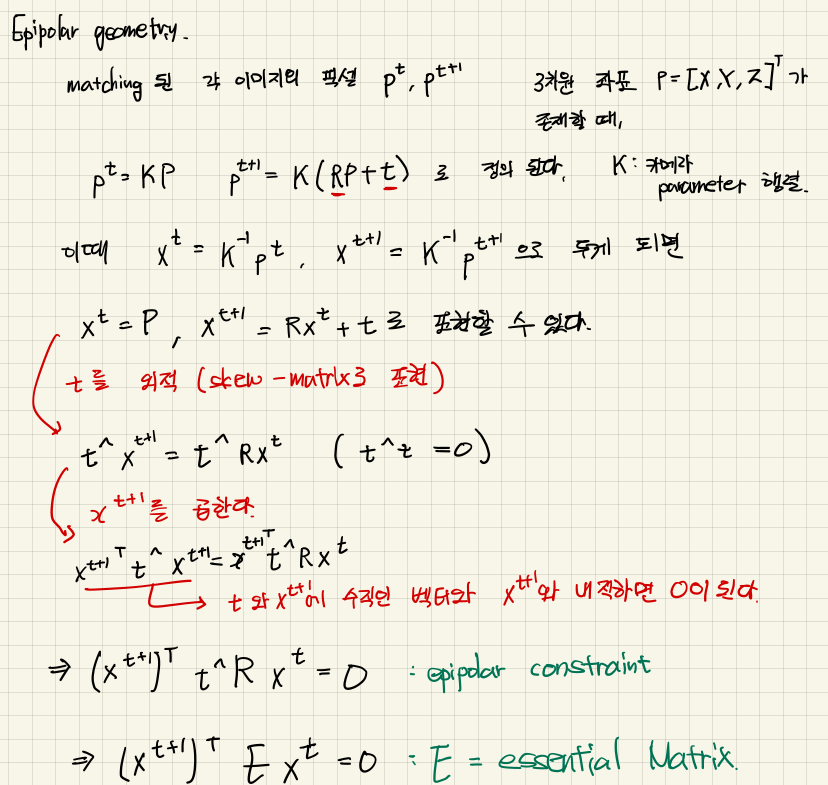 Epipolar geometry.
matching 된 각 이미지의 픽셀 p^t, p^{t+1} 3차원 좌표 P=[X,Y,Z]^T 가
존재할 때,
p^t = KP p^{t+1} = K(RP+t) 로 정의 된다. K: 카메라
parameter 행렬.
이때 x^t = K^{-1}p^t, x^{t+1} = K^{-1}p^{t+1} 으로 두게 되면
x^t = P, x^{t+1} = Rx^t + t 로 표현할 수 있다.
t를 외적 (skew-matrix로 표현)
t^ x^{t+1} = t^ Rx^t (t^t = 0)
x^{t+1}를 곱한다.
x^{t+1 T} t^ x^{t+1} = x^{t+1 T} t^ R x^t
t와 x^{t+1}에 수직인 벡터와 x^{t+1}와 내적하면 0이 된다.
⇒ (x^{t+1})^T t^ R x^t = 0 : epipolar constraint
⇒ (x^{t+1})^T E x^t = 0 : E = essential Matrix.